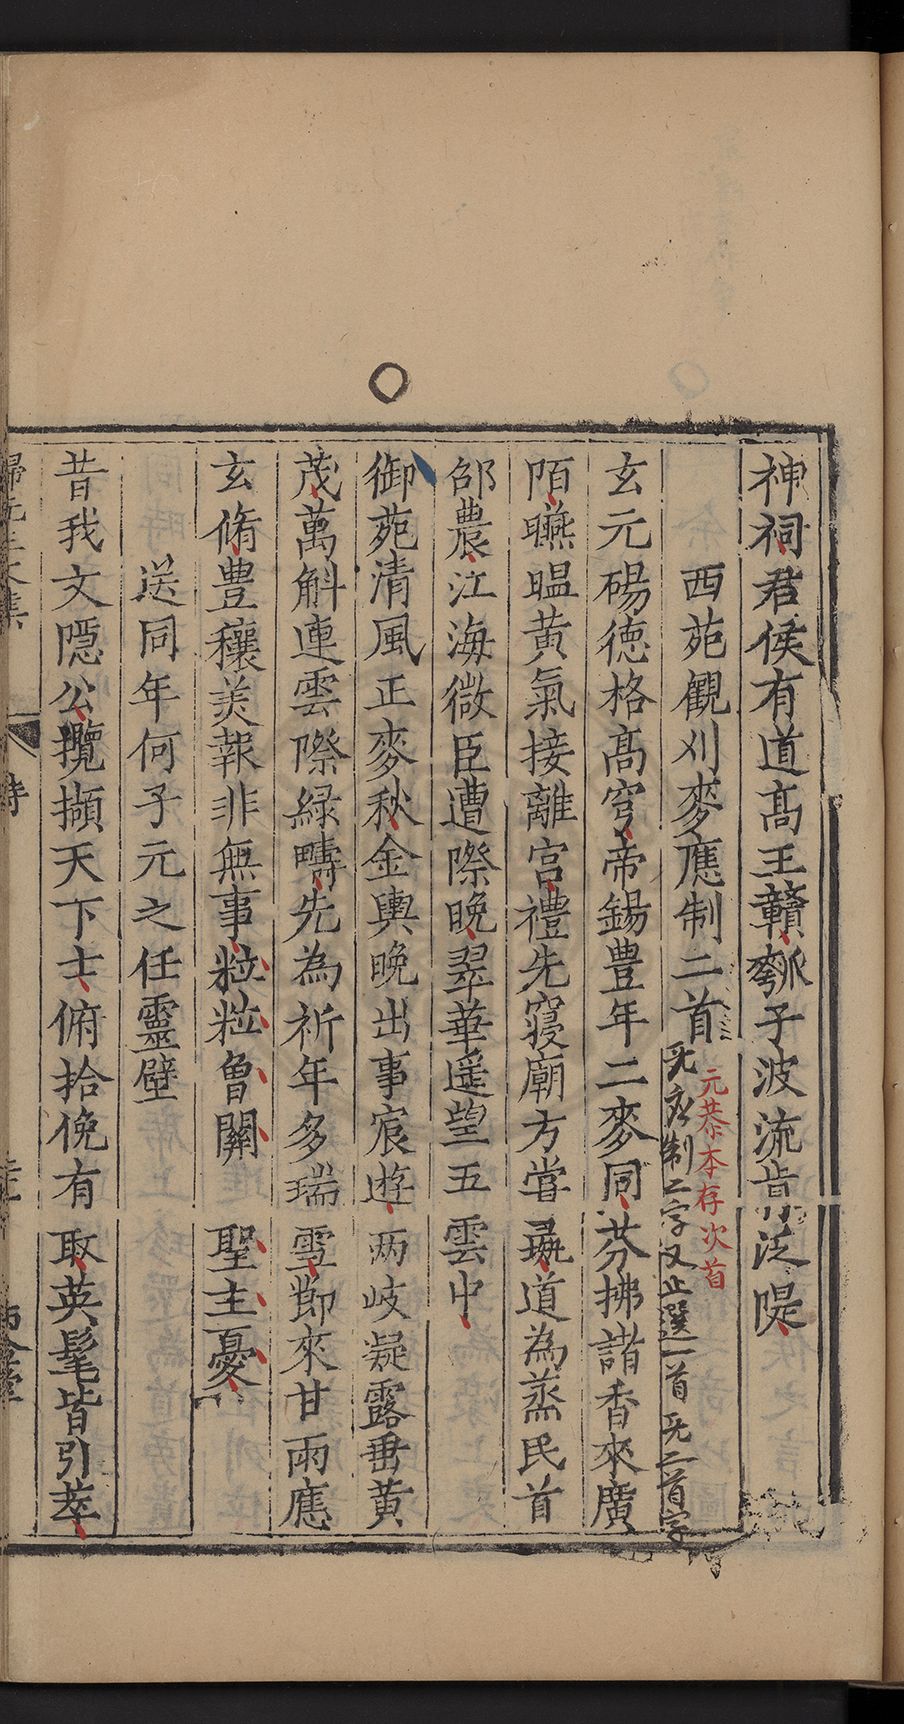 神祠君侯有道高王贛瓠子波流肯泛隄
西苑觀刈麥應制二首
元恭本存次首
旡應制二字又止選一首旡二首字
玄元碭德格高穹帝錫豊年二麥同芬拂諸香來廣
陌曣㬈黄氣接離宫禮先寝廟方甞道為蒸民首
邰農江海微臣遭際晩翠華遥望五雲中
御苑清風正麥秋金輿晩出事宸遊两岐凝露垂黄
茂萬斛連雲際緑疇先為祈年多瑞雪莭來甘雨應
玄脩豊穰羙報非無事粒粒曾關 聖主憂
送同年何子元之任靈壁
昔我文隠公攬擷天下士俯拾俛有取英髦皆引萃
歸元文集
詩